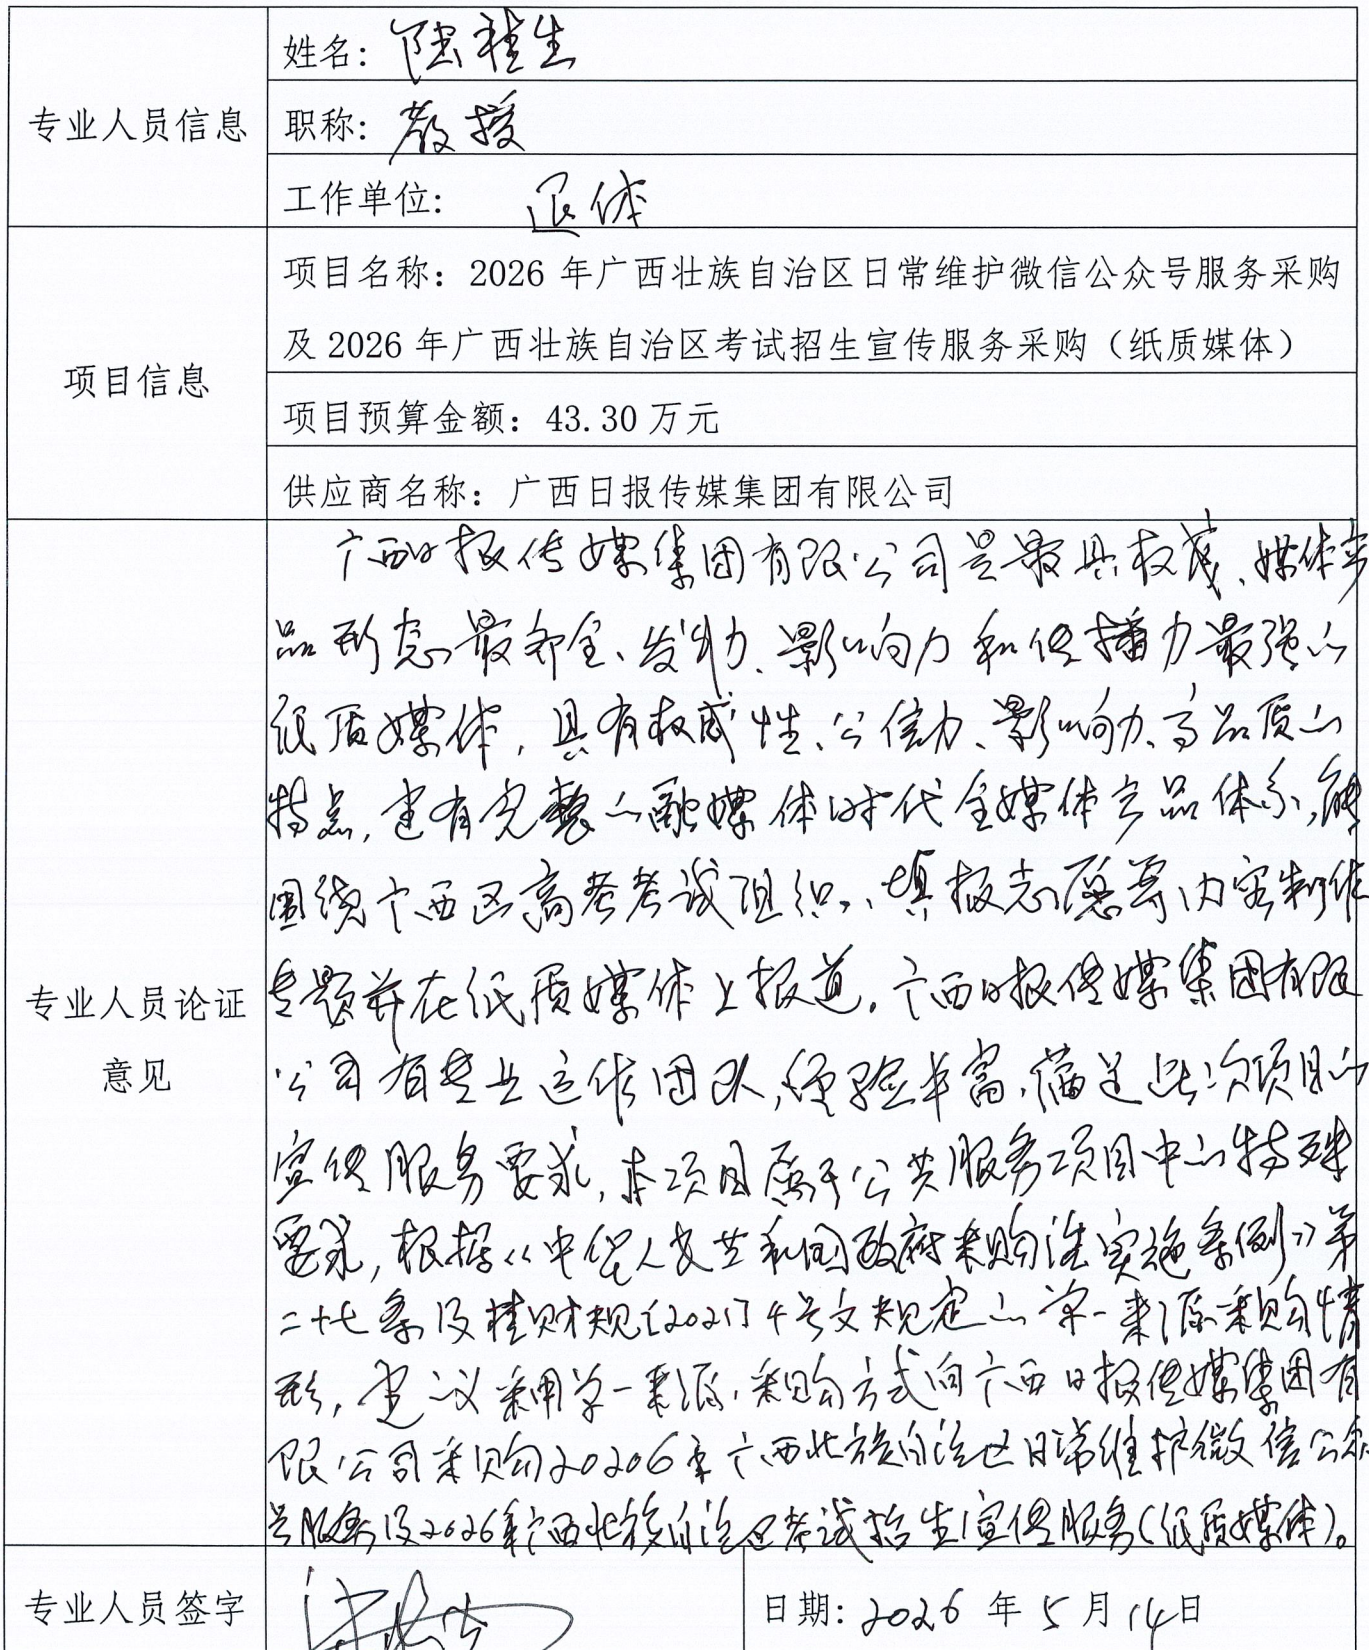 专业人员信息
姓名：陆桂生
职称：教授
工作单位：退休
项目信息
项目名称：2026 年广西壮族自治区日常维护微信公众号服务采购
及 2026 年广西壮族自治区考试招生宣传服务采购（纸质媒体）
项目预算金额：43.30 万元
供应商名称：广西日报传媒集团有限公司
专业人员论证
意见
广西日报传媒集团有限公司是最具权威、媒体产
品形态最齐全、发动力、影响力和传播力最强的
纸质媒体，具有权威性、公信力、影响力、高品质的
特点，建有完整的融媒体时代全媒体产品体系，能
围绕广西区高考考试组织、填报志愿等内容制作
专题并在纸质媒体上报道。广西日报传媒集团有限
公司有专业运作团队，经验丰富，满足此次项目的
宣传服务要求，本项目属于公共服务项目中的特殊
要求，根据《中华人民共和国政府采购法实施条例》第
二十七条及桂财规〔2021〕4号文规定的单一来源采购情
形，建议采用单一来源采购方式向广西日报传媒集团有
限公司采购20206年广西壮族自治区日常维护微信公众
号服务及2026年广西壮族自治区考试招生宣传服务（纸质媒体）。
专业人员签字
日期：2026 年 5 月 14日